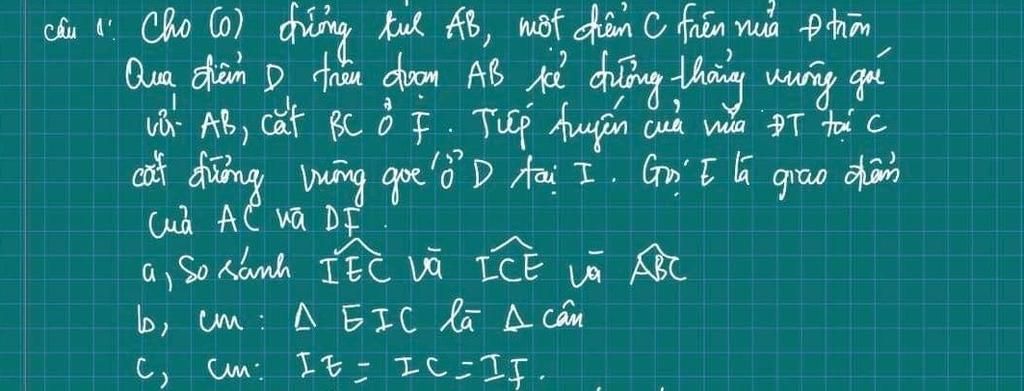 câu 1: Cho (O) đường kính AB, một điểm C trên nửa đ tròn
Qua điểm D trên đoạn AB kẻ đường thẳng vuông góc
với AB, cắt BC ở F. Tiếp tuyến của nửa ĐT tại C
cắt đường vuông góc ở D tại I. Gọi E là giao điểm
của AC và DF.
a, So sánh IEC và ICE và ABC
b, cm: Δ EIC là Δ cân
c, cm: IE = IC = IF.